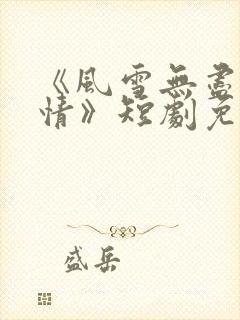 《風雪無盡
情》短劇免
盛岳